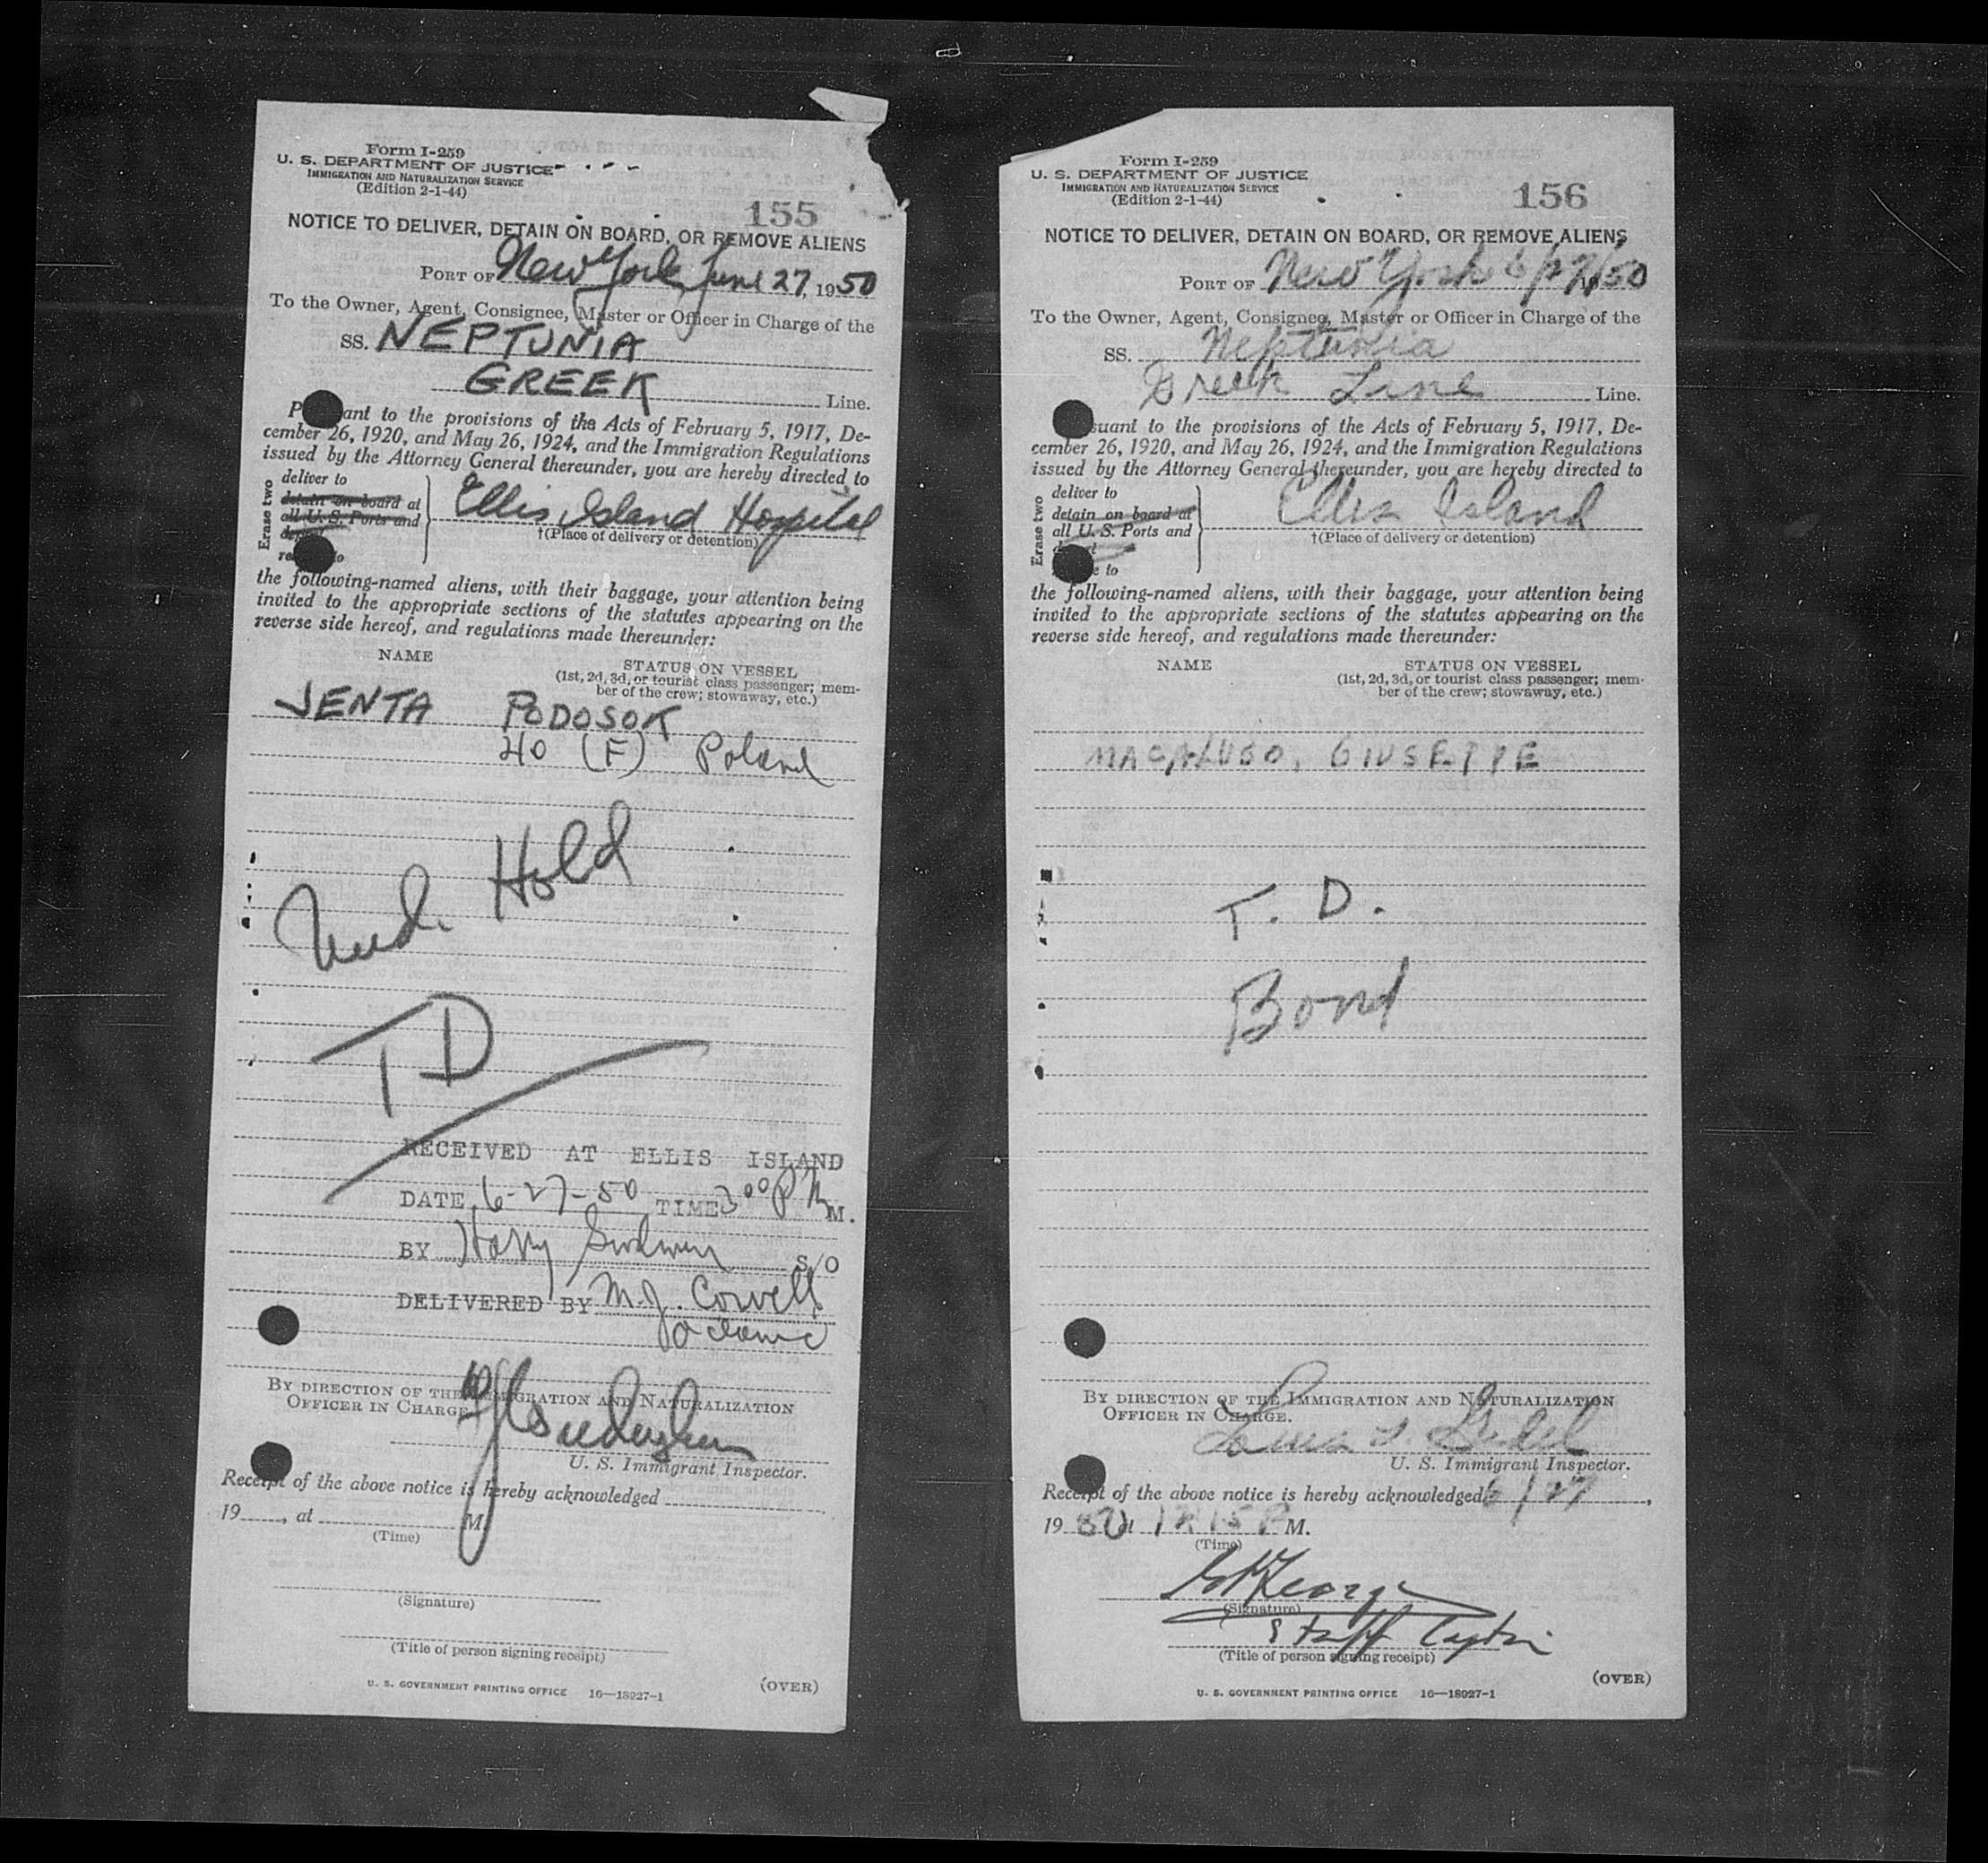 Form I-259
U. S. DEPARTMENT OF JUSTICE
IMMIGRATION AND NATURALIZATION SERVICE
(Edition 2-1-44)
155
NOTICE TO DELIVER, DETAIN ON BOARD, OR REMOVE ALIENS
PORT OF New York, June 27, 1950
To the Owner, Agent, Consignee, Master or Officer in Charge of the
SS. NEPTUNIA
GREEK Line.
P ant to the provisions of the Acts of February 5, 1917, De-
cember 26, 1920, and May 26, 1924, and the Immigration Regulations
issued by the Attorney General thereunder, you are hereby directed to
Erase two
deliver to
detain on board at
all U. S. Ports and
Ellis Island Hospital
†(Place of delivery or detention)
the following-named aliens, with their baggage, your attention being
invited to the appropriate sections of the statutes appearing on the
reverse side hereof, and regulations made thereunder:
NAME
STATUS ON VESSEL
(1st, 2d, 3d, or tourist class passenger; mem-
ber of the crew; stowaway, etc.)
JENTA PODOSOK
40 (F) Poland
Med. Hold
TD
RECEIVED AT ELLIS ISLAND
DATE 6-27-50 TIME 3 00 P M.
BY Harry S/O
DELIVERED BY M.J. Corvell
BY DIRECTION OF THE IMMIGRATION AND NATURALIZATION
OFFICER IN CHARGE.
U. S. Immigrant Inspector.
Receipt of the above notice is hereby acknowledged
19 , at M.
(Time)
(Signature)
(Title of person signing receipt)
U. S. GOVERNMENT PRINTING OFFICE 16—18927-1
(OVER)
Form I-259
U. S. DEPARTMENT OF JUSTICE
IMMIGRATION AND NATURALIZATION SERVICE
(Edition 2-1-44)
156
NOTICE TO DELIVER, DETAIN ON BOARD, OR REMOVE ALIENS
PORT OF New York 6/27/50
To the Owner, Agent, Consignee, Master or Officer in Charge of the
SS. Neptunia
Greek Line Line.
suant to the provisions of the Acts of February 5, 1917, De-
cember 26, 1920, and May 26, 1924, and the Immigration Regulations
issued by the Attorney General thereunder, you are hereby directed to
Erase two
deliver to
detain on board at
all U. S. Ports and
to
Ellis Island
†(Place of delivery or detention)
the following-named aliens, with their baggage, your attention being
invited to the appropriate sections of the statutes appearing on the
reverse side hereof, and regulations made thereunder:
NAME
STATUS ON VESSEL
(1st, 2d, 3d, or tourist class passenger; mem-
ber of the crew; stowaway, etc.)
MACALUSO, GIUSEPPE
T. D.
Bond
BY DIRECTION OF THE IMMIGRATION AND NATURALIZATION
OFFICER IN CHARGE.
U. S. Immigrant Inspector.
Receipt of the above notice is hereby acknowledged 6/27,
19 50 at 12 15 P M.
(Time)
(Signature)
Staff Captain
(Title of person signing receipt)
U. S. GOVERNMENT PRINTING OFFICE 16—18927-1
(OVER)